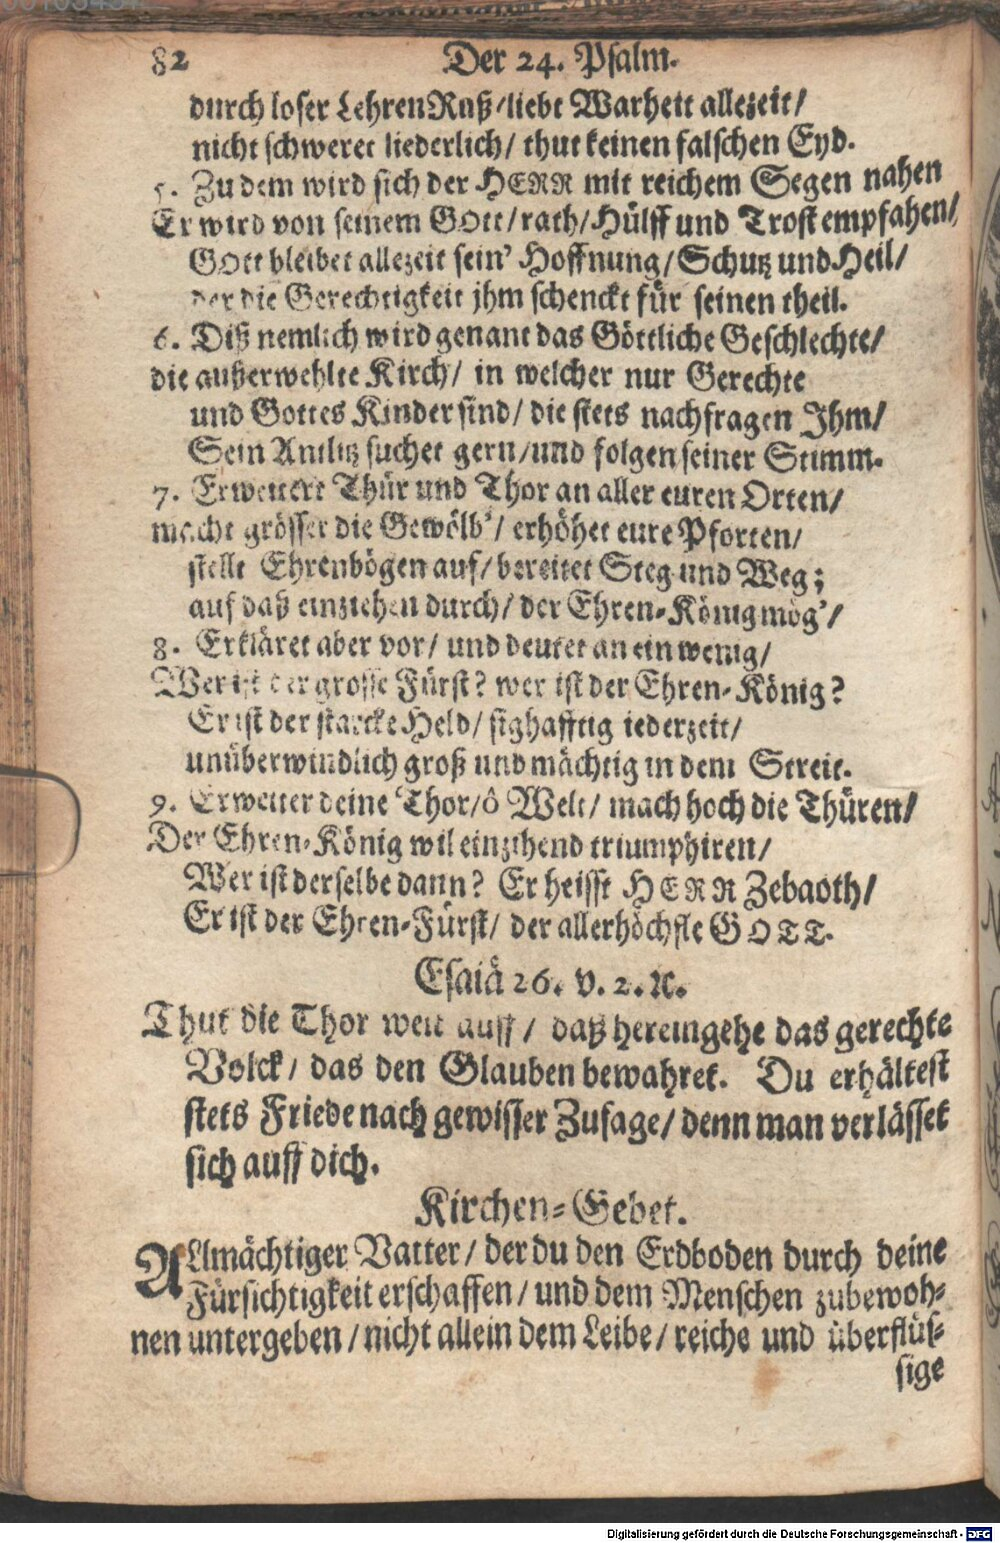 82 Der 24. Psalm.
durch loser Lehren Ruß/liebt Warheit allezeit/
nicht schweret liederlich/ thut keinen falschen Eyd.
5. Zu dem wird sich der HERR mit reichem Segen nahen
Er wird von seinem GOtt/rath/Hülff und Trost empfahen/
GOtt bleibet allezeit sein' Hoffnung/Schutz und Heil/
der die Gerechtigkeit jhm schenckt für seinen theil.
6. Diß nemlich wird genant das Göttliche Geschlechte/
die außerwehlte Kirch/ in welcher nur Gerechte
und Gottes Kinder sind/ die stets nachfragen Ihm/
Sein Antlitz suchet gern/und folgen seiner Stimm.
7. Erweitert Thür und Thor an aller euren Orten/
macht grösser die Gewölb'/ erhöhet eure Pforten/
stellt Ehrenbögen auf/ bereitet Steg und Weg;
auf daß einziehen durch/ der Ehren-König mög'/
8. Erkläret aber vor/ und deutet an ein wenig/
Wer ist der grosse Fürst? wer ist der Ehren-König?
Er ist der starcke Held/ sighafftig iederzeit/
unüberwindlich groß und mächtig in dem Streit.
9. Erweiter deine Thor/ô Welt/ mach hoch die Thüren/
Der Ehren-König wil einzihend triumphiren/
Wer ist derselbe dann? Er heisst HERR Zebaoth/
Er ist der Ehren-Fürst/ der allerhöchste GOTT.
Esaiä 26. v. 2. ꝛc.
Thut die Thor weit auff/ daß hereingehe das gerechte
Volck/ das den Glauben bewahret. Du erhältest
stets Friede nach gewisser Zusage/ denn man verlässet
sich auff dich.
Kirchen-Gebet.
ALlmächtiger Vatter/ der du den Erdboden durch deine
Fürsichtigkeit erschaffen/ und dem Menschen zubewoh-
nen untergeben/nicht allein dem Leibe/ reiche und überflüs-
sige
Digitalisierung gefördert durch die Deutsche Forschungsgemeinschaft - DFG